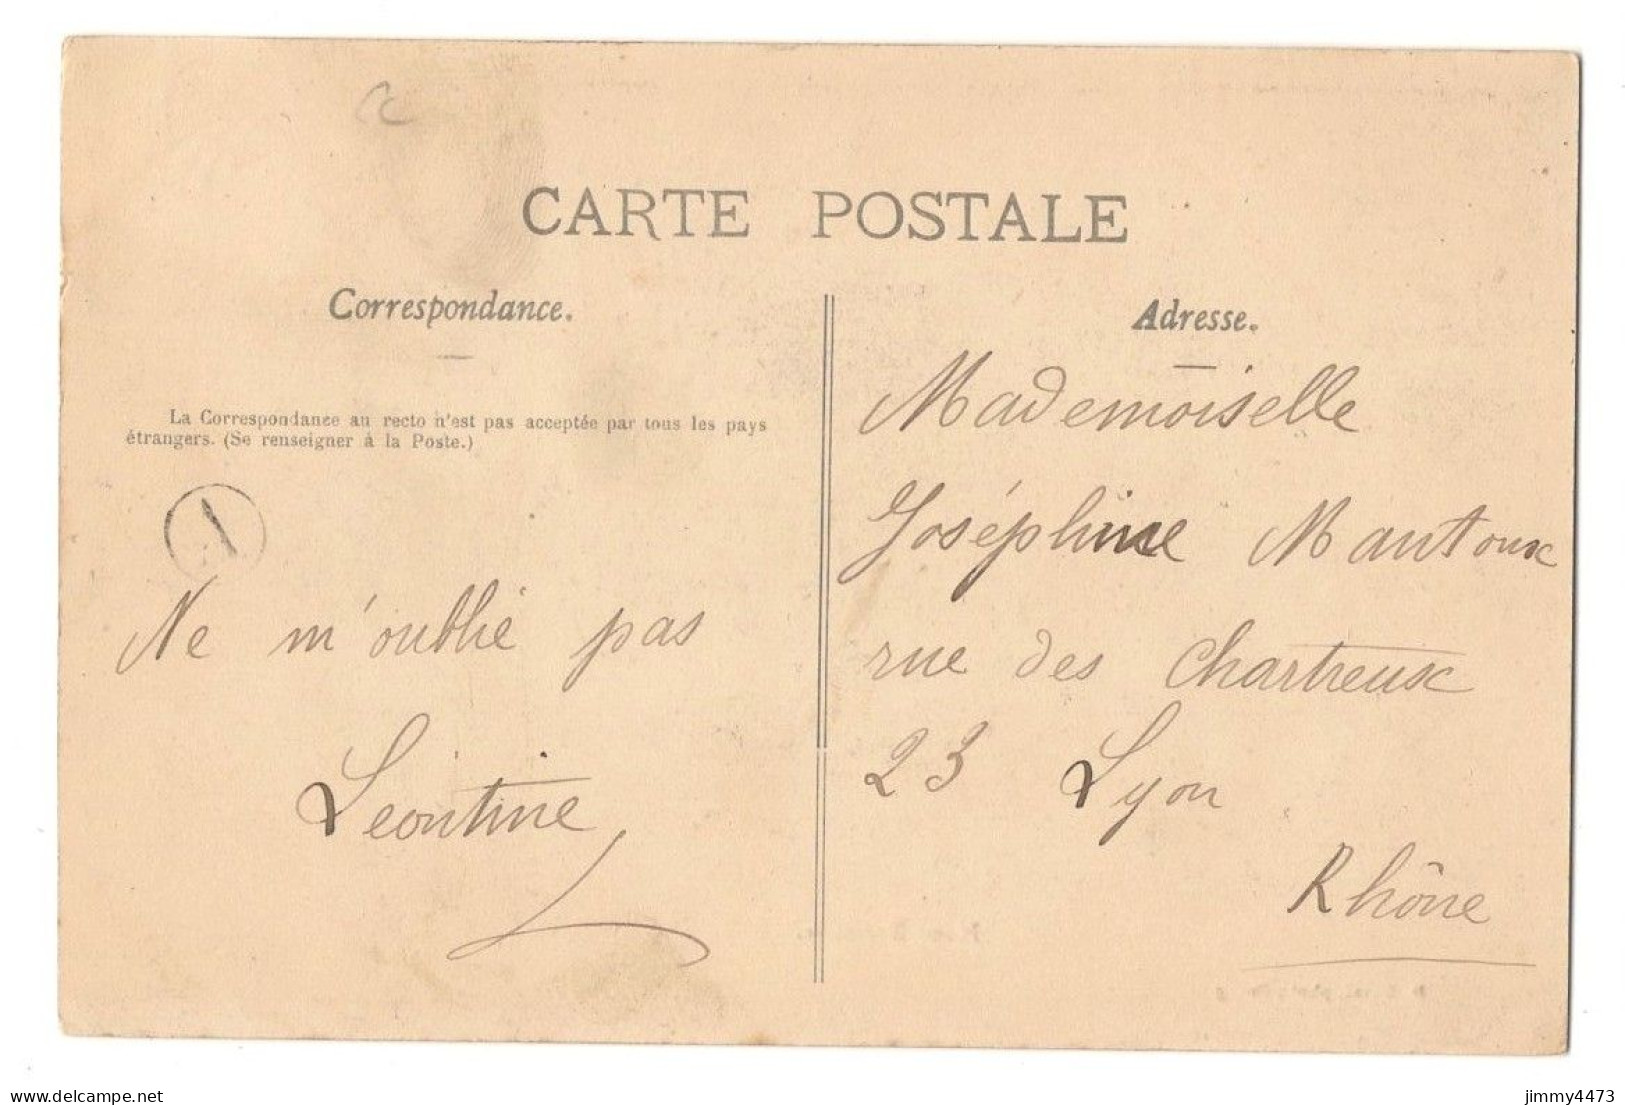 CARTE POSTALE
Correspondance.
La Correspondance au recto n'est pas acceptée par tous les pays
étrangers. (Se renseigner à la Poste.)
Ne m'oublie pas
Léontine
Adresse.
Mademoiselle
Joséphine Mantoux
rue des Chartreux
23 Lyon
Rhône
delcampe.net
jimmy4473